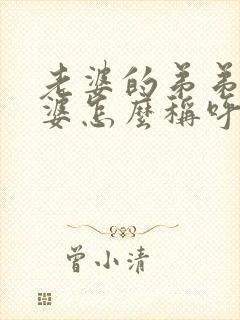 老婆的弟弟
婆怎麼稱呼
曾小清